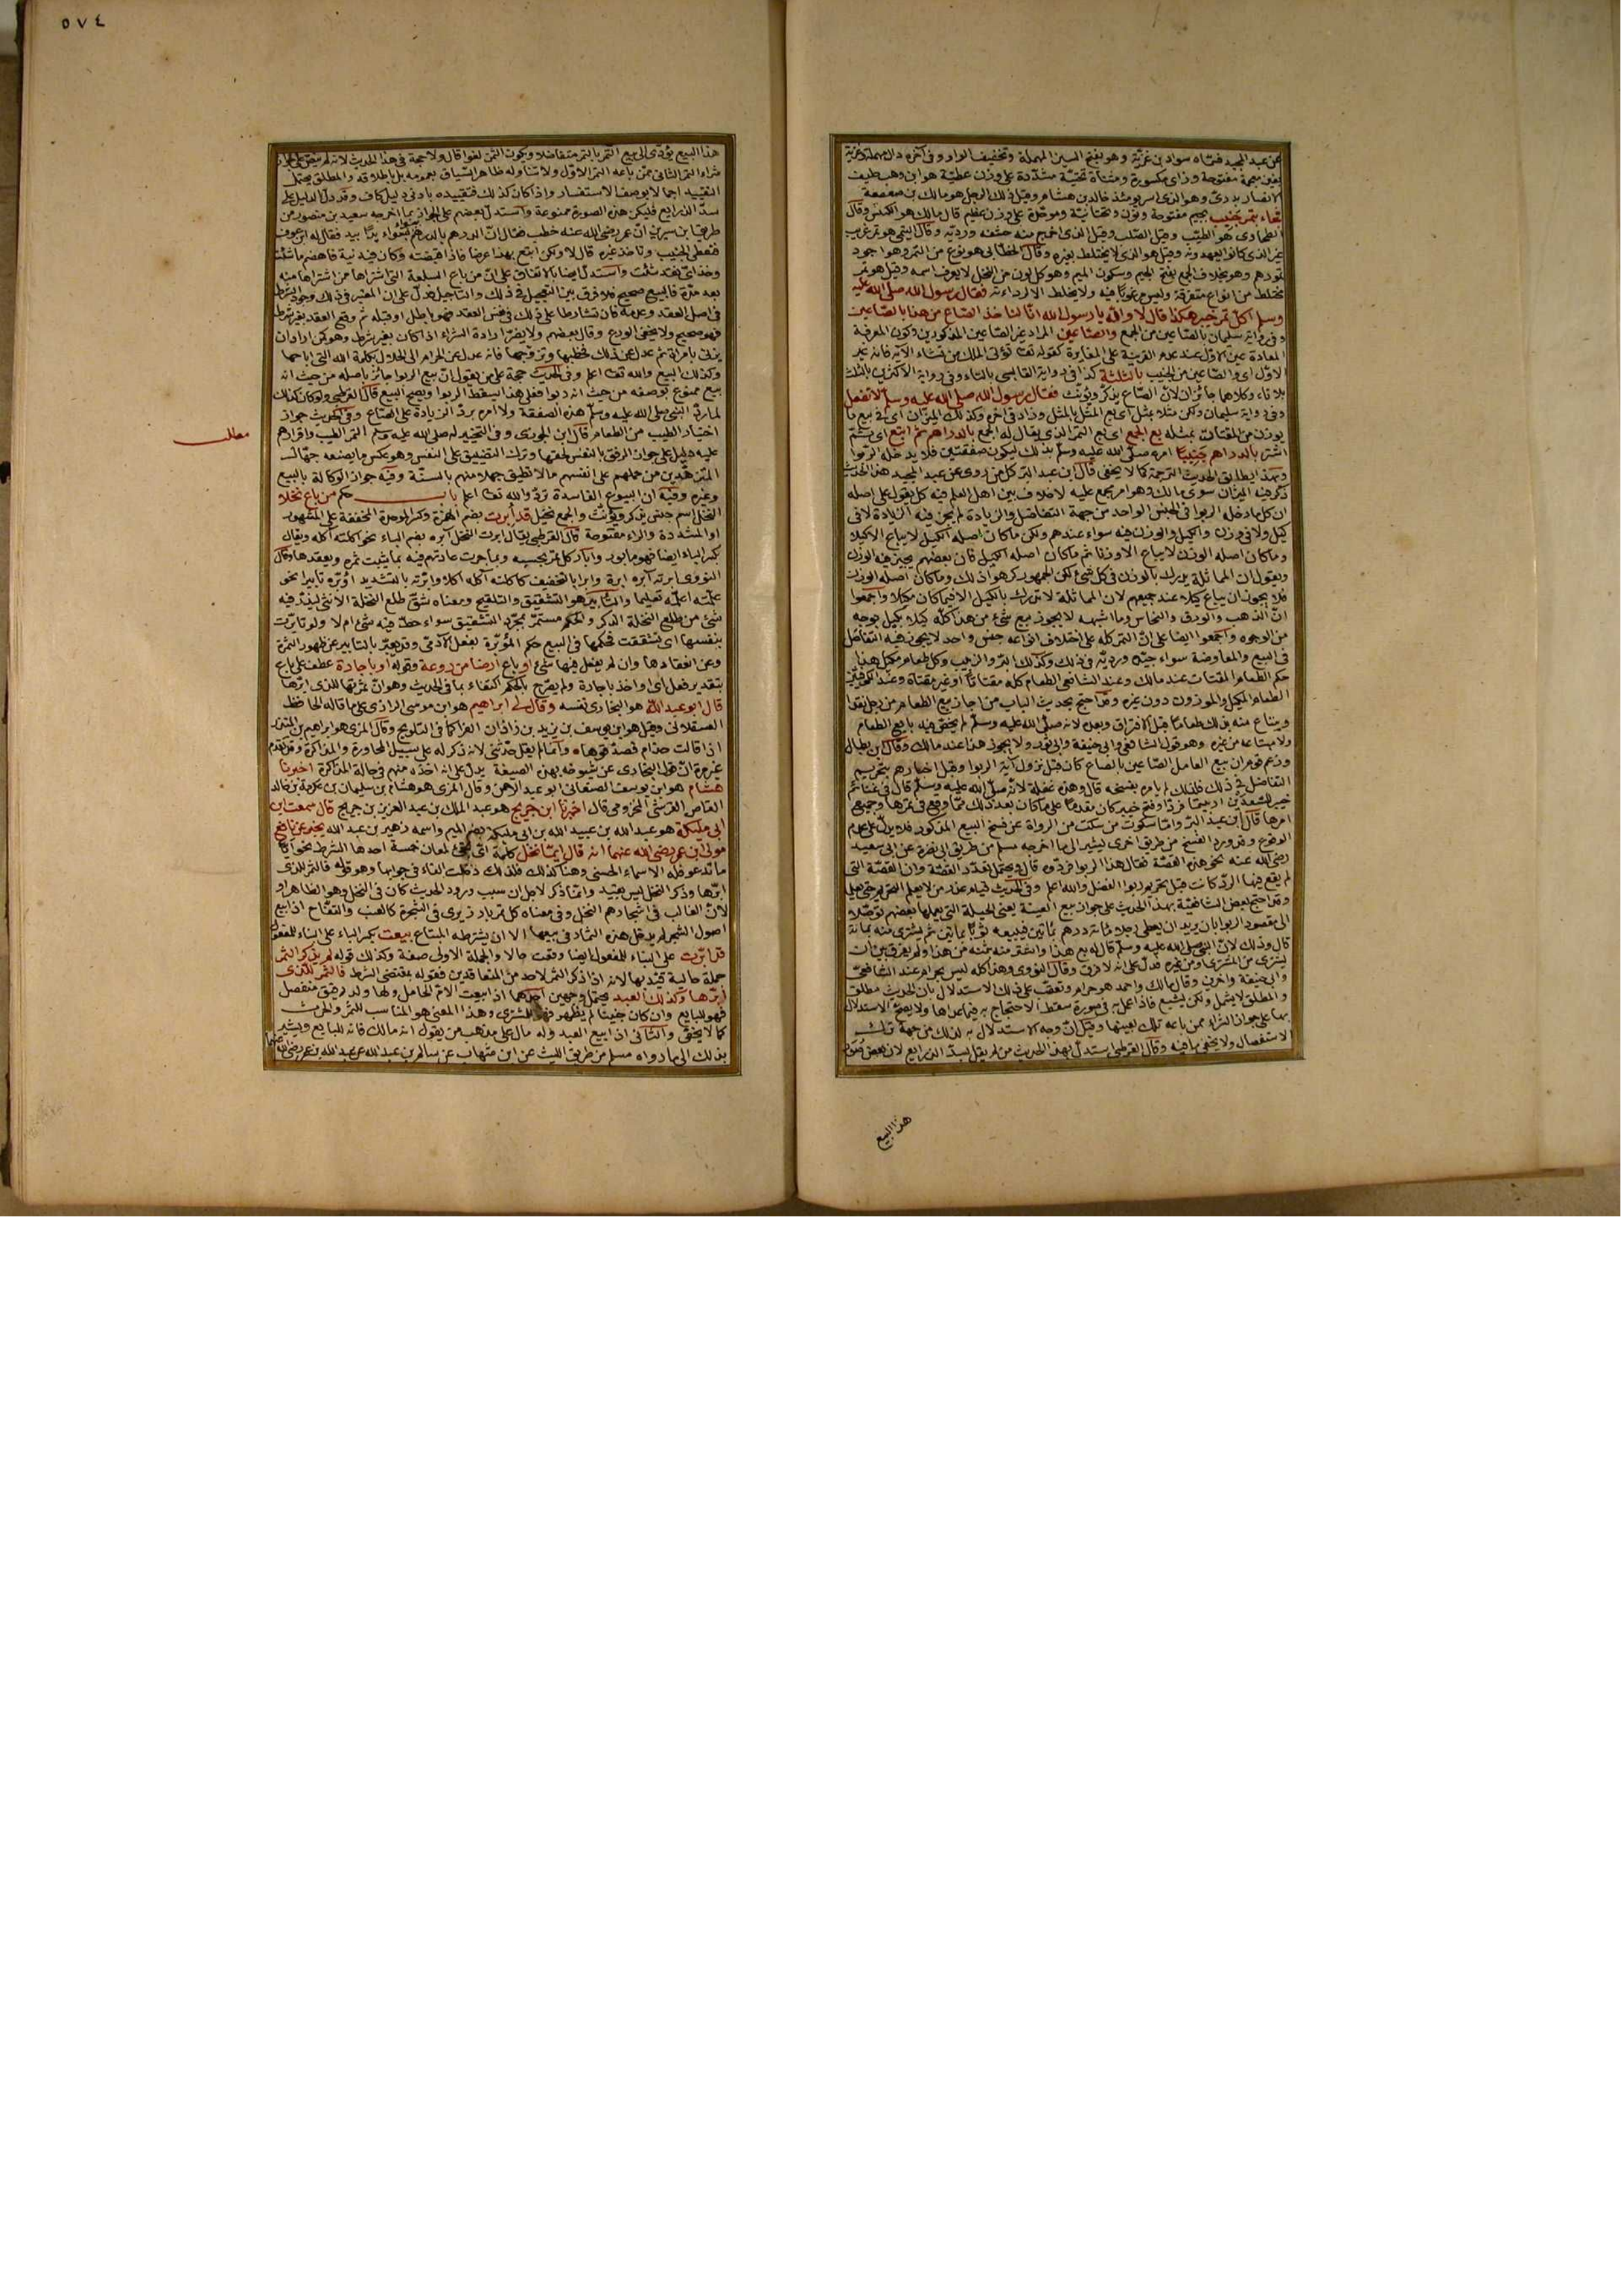 ٥٧٤
عن عبد المجيد فسماه سواد بن غزية وهو بفتح السين المهملة وتخفيف الواو وفي آخره دال مهملة وغزية
بغين معجمة مفتوحة وزاى مكسورة ومثناة تحتية مشددة على وزن عطية هو ابن وهب حليف
الانصار بدرى وهو الذى اسر يومئذ خالد بن هشام وقيل ذلك الرجل هو مالك بن صعصعة
فجاء بتمر جنيب بجيم مفتوحة ونون وتحتانية وموحدة على وزن عظيم قال مالك هو الكبيس وقال
الطحاوى هو الطيب وقيل الصلب وقيل الذى اخرج منه حشفه ورديه وقال التيمى هو تمر غريب
غير الذى كانوا يعهدونه وقيل هو الذى لا يختلط بغيره وقال الخطابى هو نوع من التمر وهو اجود
تمورهم وهو بخلاف الجمع بفتح الجيم وسكون الميم وهو كل لون من النخل لا يعرف اسمه وقيل هو تمر
مختلط من انواع متفرقة وليس مرغوبا فيه ولا يخلط الا لرداءته فقال رسول الله صلى الله عليه
وسلم اكل تمر خيبر هكذا قال لا والله يا رسول الله انا لنأخذ الصاع من هذا بالصاعين
وفى رواية سليمان بالصاعين من الجمع والصاعين المراد غير الصاعين المذكورين وكون المعرفة
المعادة عين الاول عند عدم القرينة على المغايرة كقوله تعالى تؤتى الملك من تشاء الآية فانه غير
الاول اى والصاعين من الجنيب بالثلثة كذا فى رواية القابسى بالتاء وفى رواية الاكثرين بالثلث
بلا تاء وكلاهما جائزان لان الصاع يذكر ويؤنث فقال رسول الله صلى الله عليه وسلم لا تفعل
وفى رواية سليمان ولكن مثلا بمثل اى بع المثل بالمثل وزاد فى آخره وكذلك الميزان اى فى بيع ما
يوزن من المقتات بمثله بع الجمع اى بع التمر الذى يقال له الجمع بالدراهم ثم ابتع اى ثم
اشتر بالدراهم جنيبا امره صلى الله عليه وسلم بذلك ليكون صفقتين فلا يدخله الربوا
وبهذا يطابق الحديث الترجمة كما لا يخفى قال ابن عبد البر كل من روى عن عبد المجيد هذا الحديث
ذكر فيه الميزان سوى مالك وهو امر مجمع عليه لا خلاف بين اهل العلم فيه كل يقول على اصله
ان كل ما دخله الربوا فى الجنس الواحد من جهة التفاضل والزيادة لم يجز فيه الزيادة لا فى
كيل ولا فى وزن والكيل والوزن فيه سواء عندهم ولكن ما كان اصله الكيل لا يباع الا كيلا
وما كان اصله الوزن لا يباع الا وزنا ثم ما كان اصله الكيل كان بعضهم يجيز فيه الوزن
ويقول ان المماثلة يدرك بالوزن فى كل شئ لكن الجمهور كرهوا ذلك وما كان اصله الوزن
فلا يجوز ان يباع كيلا عند جميعهم لان المماثلة لا تدرك بالكيل الا فيما كان مكيلا واجمعوا
ان الذهب والورق والنحاس وما اشبهه لا يجوز بيع شئ من هذا كله كيلا بكيل بوجه
من الوجوه واجمعوا ايضا على ان التمر كله على اختلاف انواعه جنس واحد لا يجوز فيه التفاضل
فى البيع والمعاوضة سواء جيده ورديه فى ذلك وكذلك البر والزبيب وكل طعام مكيل هذا
حكم الطعام المقتات عند مالك وعند الشافعى الطعام كله مقتاتا او غير مقتات وعند الكوفيين
الطعام المكيل والموزون دون غيره وقد احتج بحديث الباب من اجاز بيع الطعام من رجل نقدا
ويبتاع منه بذلك طعاما قبل الافتراق وبعده لانه صلى الله عليه وسلم لم يخص فيه بايع الطعام
ولا مبتاعه من غيره وهو قول الشافعى وابى حنيفة وابى ثور ولا يجوز هذا عند مالك وقال ابن بطال
وزعم قوم ان بيع العامل الصاعين بالصاع كان قبل نزول آية الربوا وقبل اخبارهم بتحريم
التفاضل فى ذلك فلذلك لم يأمره بفسخه قال وهذه غفلة لانه صلى الله عليه وسلم قال فى غنائم
خيبر للسعدين اربيتما فردا وفتح خيبر كان مقدما على ما كان بعد ذلك مما وقع فى تمرها وجميع
امرها قال ابن عبد البر واما سكوت من سكت من الرواة عن فسخ البيع المذكور فلا يدل على عدم
الوقوع وقد ورد الفسخ من طريق اخرى يشير الى ما اخرجه مسلم من طريق ابى نضرة عن ابى سعيد
رضى الله عنه نحو هذه القصة فقال هذا الربوا فردوه قال ويحتمل تعدد القصة وان القصة التى
لم يقع فيها الرد كانت قبل تحريم ربوا الفضل والله اعلم وفى الحديث قيام عذر من لا يعلم التحريم حتى يعلمه
وقد احتج بعض الشافعية بهذا الحديث على جواز بيع العينة يعنى الحيلة التى يعملها بعضهم توصلا
الى مقصود الربوا بان يريد ان يعطى رجلا مائة درهم بمائتين فيبيعه ثوبا بمائتين ثم يشترى منه بمائة
قال وذلك لان النبى صلى الله عليه وسلم قال له بع هذا واشتر منه بثمنه من هذا ولم يفرق بين ان
يشترى من المشترى او من غيره فدل على انه لا فرق وقال النووى وهذا كله ليس بحرام عند الشافعى
وابى حنيفة وآخرين وقال مالك واحمد هو حرام وتعقب على ذلك الاستدلال بان الحديث مطلق
والمطلق لا يشمل ولكن يشيع فاذا عمل به فى صورة سقط الاحتجاج به فيما عداها ولا يصح الاستدلال
بها على جواز الشراء ممن باعه تلك بعينها وقيل ان وجه الاستدلال به لذلك من جهة ترك
الاستفصال ولا يخفى ما فيه وقال القرطبى استدل بهذا الحديث من لم يقل بسد الذرايع لان بعض صور
هذا البيع
هذا البيع يؤدى الى بيع التمر بالتمر متفاضلا ويكون الثمن لغوا قال ولا حجة فى هذا الحديث لانه لم ينص على جواز
شراء التمر الثانى ممن باعه التمر الاول ولا تناوله ظاهر السياق بعمومه بل باطلاقه والمطلق يحتمل
التقييد اجمالا بوصف الاستفسار واذا كان كذلك فتقييده بادنى دليل كاف وقد دل الدليل على
سد الذرايع فليكن هذه الصورة ممنوعة واستدل بعضهم على الجواز بما اخرجه سعيد بن منصور من
طريق ابن سيرين ان عمر رضى الله عنه خطب فقال ان الدرهم بالدرهم سواء يدا بيد فقال له ابن عوف
فنعطى الجنيب ونأخذ غيره قال لا ولكن ابتع بهذا عرضا فاذا قبضته وكان فيه نية فاهضم ما شئت
وخذ اى نقد شئت واستدل ايضا بالاتفاق على ان من باع السلعة التى اشتراها ممن اشتراها منه
بعد مدة فالبيع صحيح فلا فرق بين التعجيل فى ذلك والتأجيل فدل على ان المعتبر فى ذلك وجود الشرط
فى اصل العقد وعدمه فان تشارطا على ذلك فى نفس العقد فهو باطل او قبله ثم وقع العقد بغير شرط
فهو صحيح ولا يخفى الورع وقال بعضهم ولا يضر ارادة الشراء اذا كان بغير شرط وهو كمن اراد ان
يزنى بامرأة ثم عدل عن ذلك فخطبها وتزوجها فانه عدل عن الحرام الى الحلال بكلمة الله التى اباحها
وكذلك البيع والله تعالى اعلم وفى الحديث حجة على من يقول ان بيع الربوا جائز باصله من حيث انه
بيع ممنوع بوصفه من حيث انه ربوا فعلى هذا يسقط الربوا ويصح البيع قال القرطبى ولو كان كذلك
لما رد النبى صلى الله عليه وسلم هذه الصفقة ولا امره برد الزيادة على الصاع وفى الحديث جواز
اختيار الطيب من الطعام قال ابن الجوزى وفى التخيير له صلى الله عليه وسلم التمر الطيب واقرارهم
مطلب
عليه دليل على جواز الرفق بالنفس لحقها وترك التضييق على النفس وهو عكس ما يصنعه جهال
المتزهدين من حملهم على انفسهم ما لا تطيق جهلا منهم بالسنة وفيه جواز الوكالة بالبيع
وغيره وفيه ان البيوع الفاسدة ترد والله تعالى اعلم باب حكم من باع نخلا
النخل اسم جنس يذكر ويؤنث والجمع نخيل قد أبرت بضم الهمزة وكسر الموحدة المخففة على المشهور
او المشددة والراء مفتوحة قال القرطبى يقال ابرت النخل آبره بضم الباء نحو اكلته آكله ويقال
بكسر الباء ايضا فهو مأبور وابار كل تمر بحسبه وبما جرت عادتهم فيه بما يثبت ثمره ويعقدها وقال
النووى ابرته آبره ابرة وابرا بالتخفيف كاكلته آكله اكلا وابرته بالتشديد اؤبره تأبيرا نحو
علمته اعلمه تعليما والتأبير هو التشقيق والتلقيح ومعناه شق طلع النخلة الانثى ليذر فيه
شئ من طلع النخلة الذكر والحكم مستمر بمجرد التشقيق سواء حط فيه شئ ام لا ولو تأبرت
بنفسها اى تشققت فحكمها فى البيع حكم المؤبرة بفعل الآدمى وقد يعبر بالتأبير عن ظهور الثمرة
وعن انعقادها وان لم يفعل فيها شئ او باع ارضا مزروعة وقوله او باجارة عطف على باع
بتقدير فعل اى او اخذ باجارة ولم يصرح بالحكم اكتفاء بما فى الحديث وهو ان ثمرتها للذى ابرها
قال ابو عبد الله هو البخارى نفسه وقال لى ابراهيم هو ابن موسى الرازى على ما قاله الحافظ
العسقلانى وقيل هو ابن يوسف بن يزيد بن زاذان الفرا كما فى التلويح وقال المزى هو ابراهيم بن المنذر
اذا قالت حذام فصدقوها وانما لم يقل حدثنى لانه ذكر له على سبيل المحاورة والمذاكرة وقد تقدم
غير مرة ان قول البخارى عن شيوخه بهذه الصيغة يدل على انه اخذه منهم فى حالة المذاكرة اخبرنا
هشام هو ابن يوسف الصنعانى ابو عبد الرحمن وقال المزى هو هشام بن سليمان بن عكرمة بن خالد
القاص القرشى المخزومى قال اخبرنا ابن جريج هو عبد الملك بن عبد العزيز بن جريج قال سمعت ابن
ابى مليكة هو عبد الله بن عبيد الله بن ابى مليكة بضم الميم واسمه زهير بن عبد الله يخبر عن نافع
مولى ابن عمر رضى الله عنهما انه قال ايما نخل كلمة اى تجئ لمعان خمسة احدها الشرط نحو ايا
ما تدعو فله الاسماء الحسنى وهنا كذلك فلذلك دخلت الفاء فى جوابها وهو قوله فالثمر للذى
ابرها وذكر النخل ليس بقيد وانما ذكر لاجل ان سبب ورود الحديث كان فى النخل وهو الظاهر او
لان الغالب فى اشجارهم النخل وفى معناه كل ثمر بارز يرى فى الشجرة كالعنب والتفاح اذا بيع
اصول الشجر لم يدخل هذه الثمار فى بيعها الا ان يشترطه المبتاع بيعت بكسر الباء على البناء للمفعول
قد ابرت على البناء للمفعول ايضا وقعت حالا والجملة الاولى صفة وكذلك قوله لم يذكر الثمر
جملة حالية قيد بها لانه اذا ذكر الثمر لاحد من المتعاقدين فقوله بمقتضى الشرط فالثمر للذى
ابرها وكذلك العبد يحتمل وجهين احدهما اذا بيعت الام الحامل ولها ولد رقيق منفصل
فهو للبايع وان كان جنينا لم يظهر فهو للمشترى وهذا المعنى هو المناسب للثمر والحرث
كما لا يخفى والثانى اذا بيع العبد وله مال على مذهب من يقول انه مالك فانه للبايع ويشير
بذلك الى ما رواه مسلم من طريق الليث عن ابن شهاب عن سالم بن عبد الله عن عبد الله بن عمر رضى الله عنهما